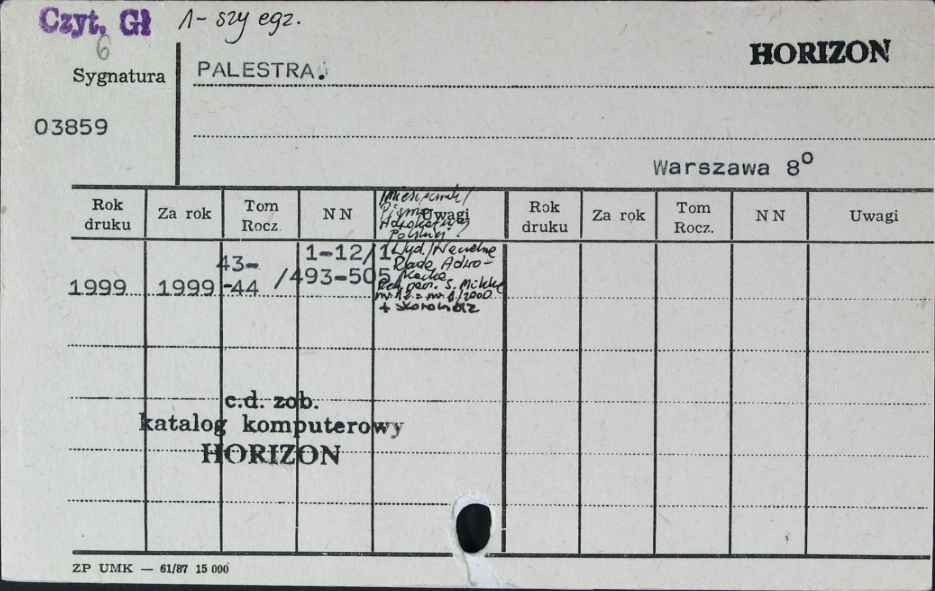 Czyt. Gł 1-szy egz.
6
HORIZON
Sygnatura
PALESTRA.
03859
Warszawa 8º
Rok druku Za rok Tom Rocz. NN Uwagi Rok druku Za rok Tom Rocz. NN Uwagi
Pismo
Adwokatury
Polskiej
1999 1999 43-44 1-12/ /493-505
Wyd. Naczelna
Rada Adwo-
kacka
Red. nacz. S. Mikke
nr 12 = nr 1/2000
+ skorowidz
c.d. zob.
katalog komputerowy
HORIZON
ZP UMK — 61/87 15 000